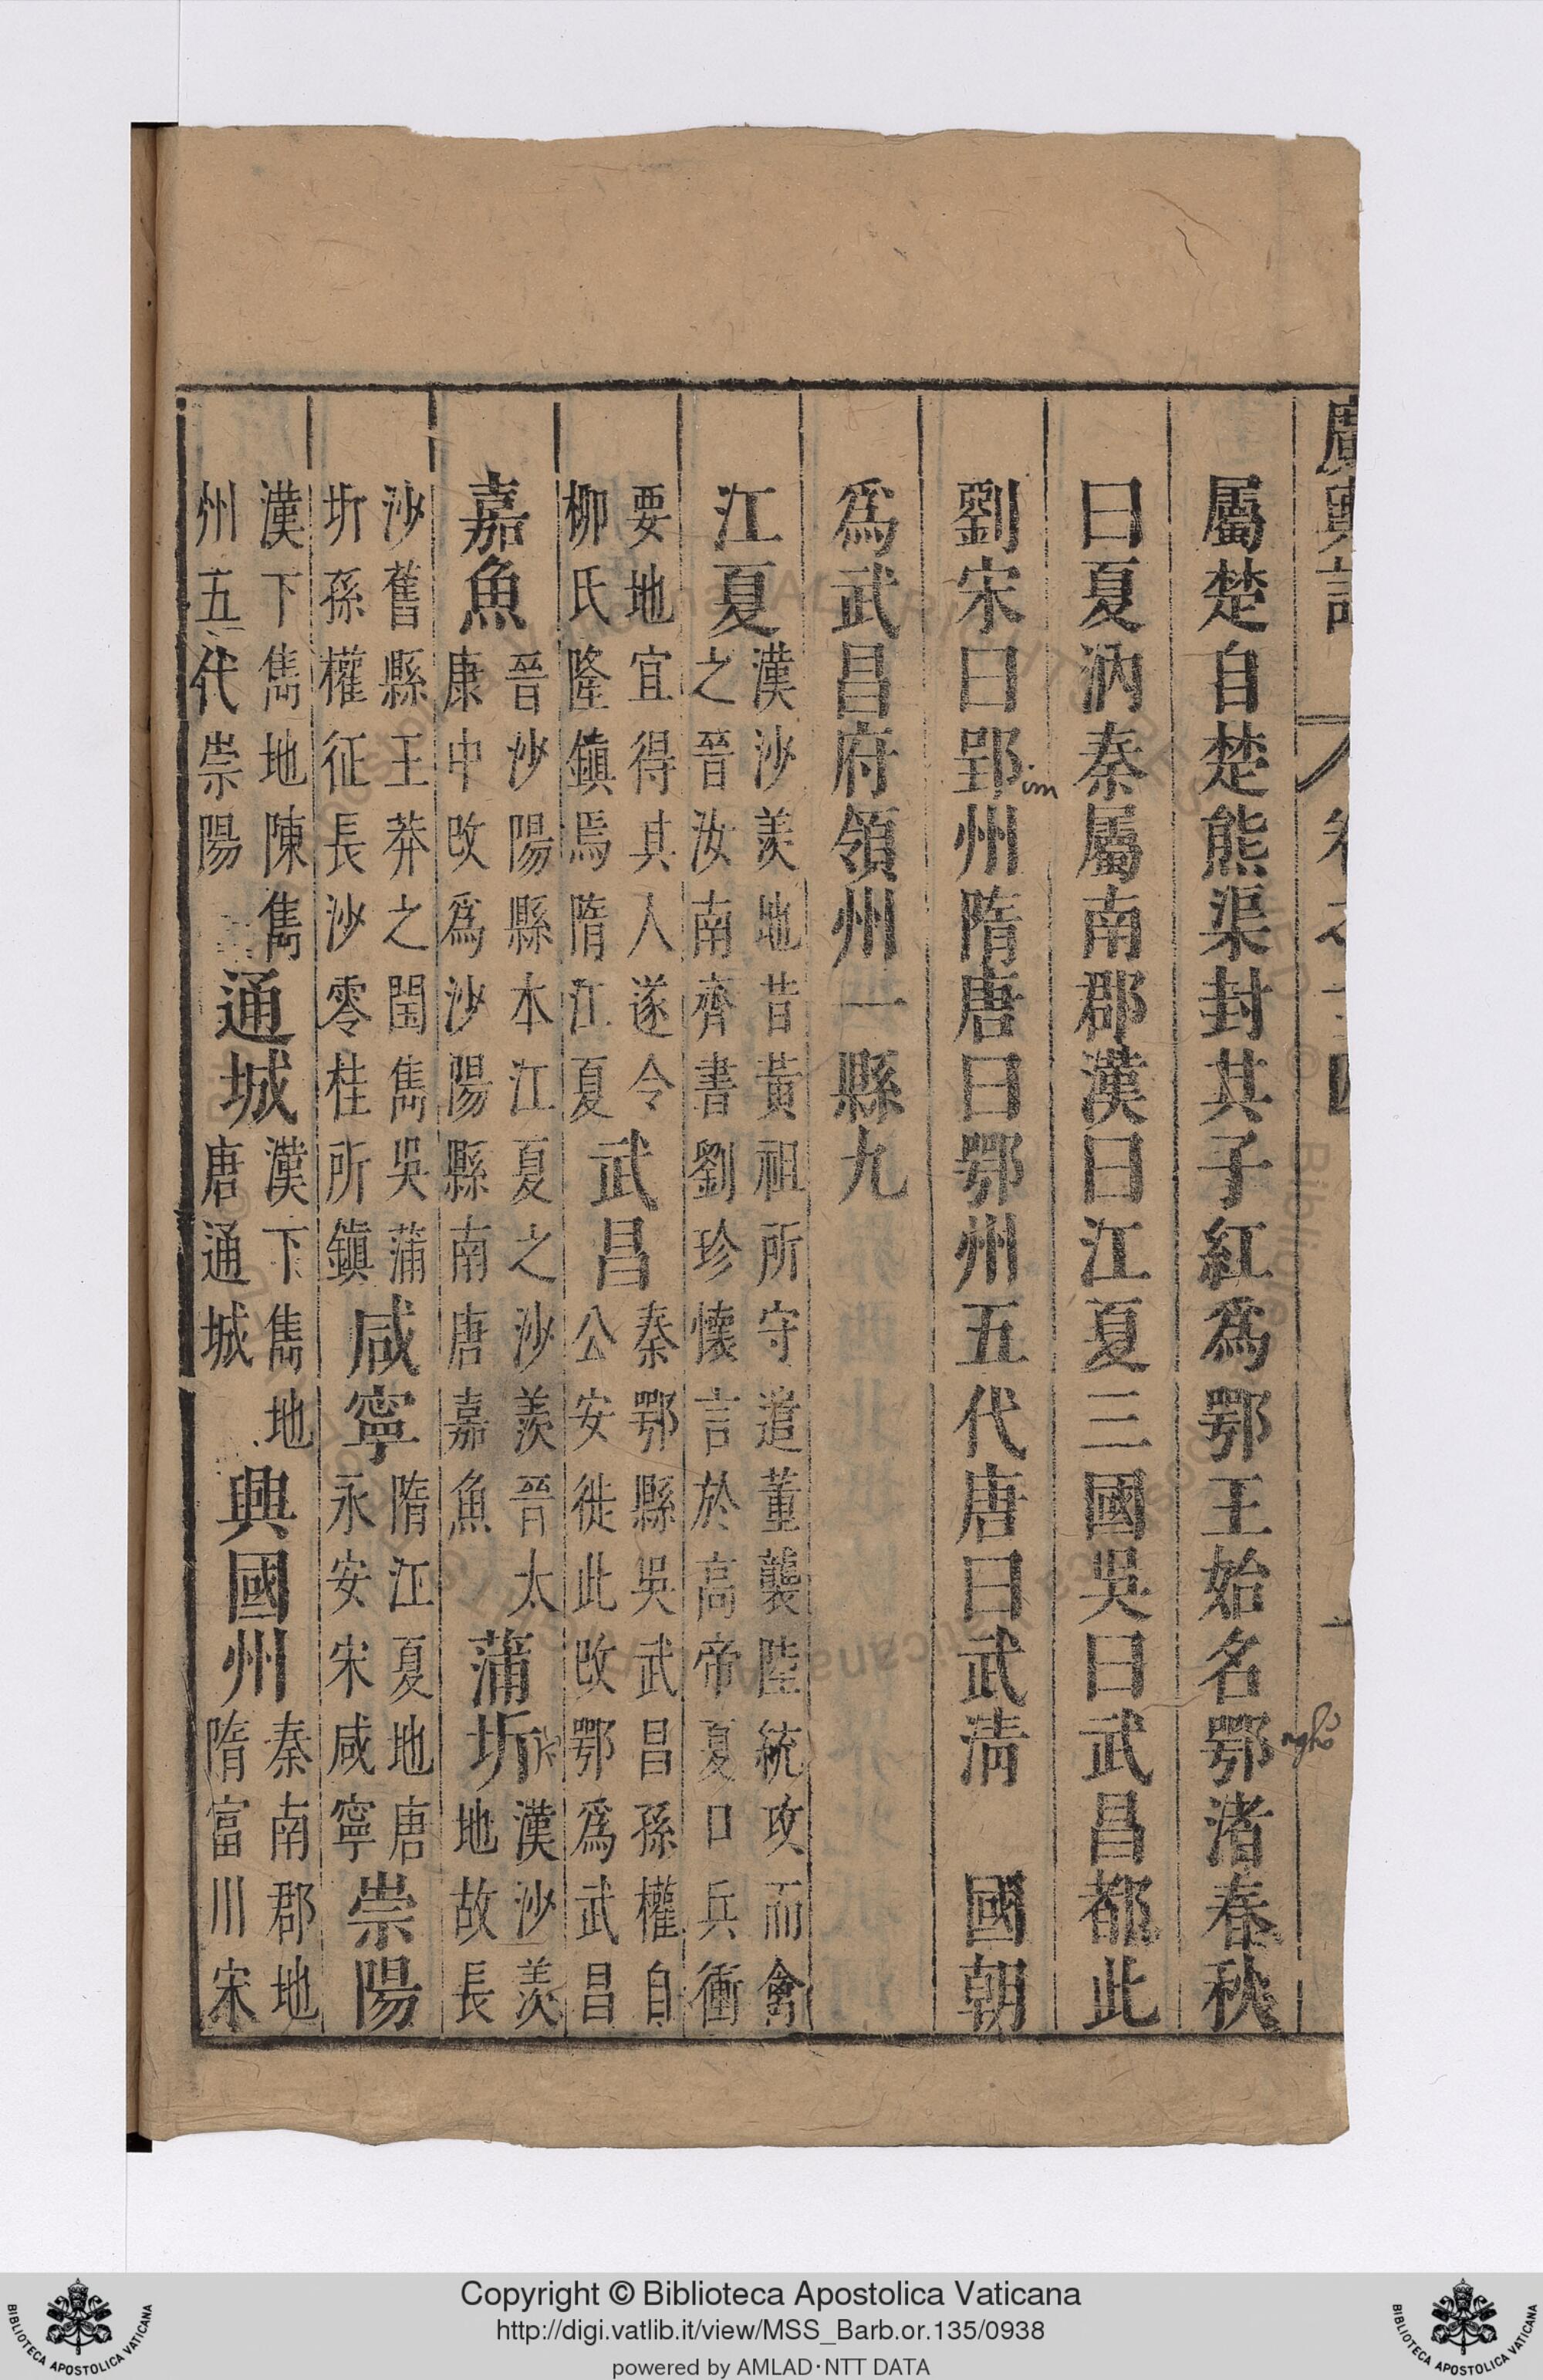 廣輿記 卷
屬楚自楚熊渠封其子紅爲鄂王始名鄂渚春秋
nghŏ
曰夏汭秦屬南郡漢曰江夏三國吳曰武昌都此
劉宋曰郢州隋唐曰鄂州五代唐曰武淸 國朝
im
爲武昌府領州一縣九
江夏
漢沙羨地昔黃祖所守遣董襲陸統攻而禽
之晉汝南齊書劉珍懷言於高帝夏口兵衝
要地宜得其人遂令
柳氏隆鎭焉隋江夏
武昌
秦鄂縣吳武昌孫權自
公安徙此改鄂爲武昌
嘉魚
晉沙陽縣本江夏之沙羨晉太
康中改爲沙陽縣南唐嘉魚
蒲圻
漢沙羨
地故長
沙舊縣王莽之閏雋吳蒲
圻孫權征長沙零桂所鎭
咸寧
隋江夏地唐
永安宋咸寧
崇陽
漢下雋地陳雋
州五代崇陽
通城
漢下雋地
唐通城
興國州
秦南郡地
隋富川宋
Copyright © Biblioteca Apostolica Vaticana
http://digi.vatlib.it/view/MSS_Barb.or.135/0938
powered by AMLAD·NTT DATA
BIBLIOTECA APOSTOLICA VATICANA
BIBLIOTECA APOSTOLICA VATICANA